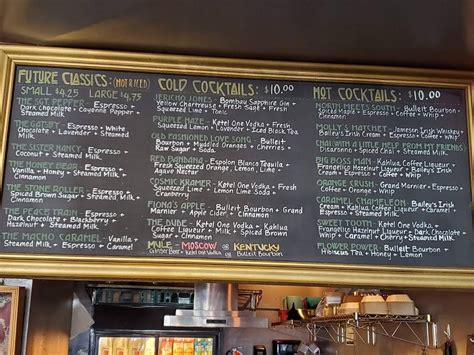 FUTURE CLASSICS: (NOT ICED)
SMALL $4.25 LARGE $4.75
THE SGT PEPPER - Espresso +
Dark Chocolate + Cayenne Pepper +
Steamed Milk
THE GATSBY - Espresso + White
Chocolate + Lavender + Steamed
Milk
THE SISTER NANCY - Espresso +
Coconut + Steamed Milk
THE HONEY BEAR - Espresso +
Vanilla + Honey + Steamed Milk
+ Cinnamon
THE STONE ROLLER - Espresso +
Spiced Brown Sugar + Cinnamon +
Steamed Milk
THE PEACE TRAIN - Espresso +
Dark Chocolate + Blackberry +
Hazelnut + Steamed Milk
THE MACHO CARAMEL - Vanilla +
Steamed Milk + Espresso + Caramel
COLD COCKTAILS: $10.00
JERICHO JONES - Bombay Sapphire Gin +
Yellow Chartreuse + Fresh Sage + Fresh
Squeezed Lime + Tonic
PURPLE HAZE - Ketel One Vodka + Fresh
Squeezed Lemon + Lavender + Iced Black Tea
OLD FASHIONED LOVE SONG - Bulleit
Bourbon + Muddled Oranges + Cherries +
Raw Sugar
RED BANDANA - Espolon Blanco Tequila +
Fresh Squeezed Orange, Lemon, Lime +
Agave Nectar
COSMIC KRAMER - Ketel One Vodka + Fresh
Squeezed Orange, Lemon, Lime +
Cranberry
FIONA'S APPLE - Bulleit Bourbon + Grand
Marnier + Apple Cider + Cinnamon
THE DUNE - Ketel One Vodka + Kahlua
Coffee Liqueur + Milk + Spiced Brown
Sugar + Cinnamon
MULE - MOSCOW OR KENTUCKY
Ginger Beer + Ketel One Vodka OR Bulleit Bourbon
HOT COCKTAILS: $10.00
NORTH MEETS SOUTH - Bulleit Bourbon +
Spiced Maple + Espresso + Coffee + Whip
MOLLY'S HATCHET - Jameson Irish Whiskey +
Bailey's Irish Cream + Espresso + Coffee + Whip
CHAI WITH A LITTLE HELP FROM MY FRIENDS
Disaronno + Spiced Chai + Steamed Milk
BIG BOSS MAN - Kahlua Coffee Liqueur +
Frangelico Hazelnut Liqueur + Dark
Chocolate + Espresso + Coffee + Whip
ORANGE CRUSH - Grand Marnier + Espresso
+ Whip
CARAMEL CHAMELEON - Bailey's Irish
Cream + Kahlua Coffee Liqueur + Caramel
+ Espresso + Steamed Milk
SWEET TOOTH - Ketel One Vodka +
Frangelico Hazelnut Liqueur + Dark Chocolate +
Whip + Caramel + Cherry + Steamed Milk
FLOWER POWER - Bulleit Bourbon +
Hibiscus Tea + Honey + Lemon